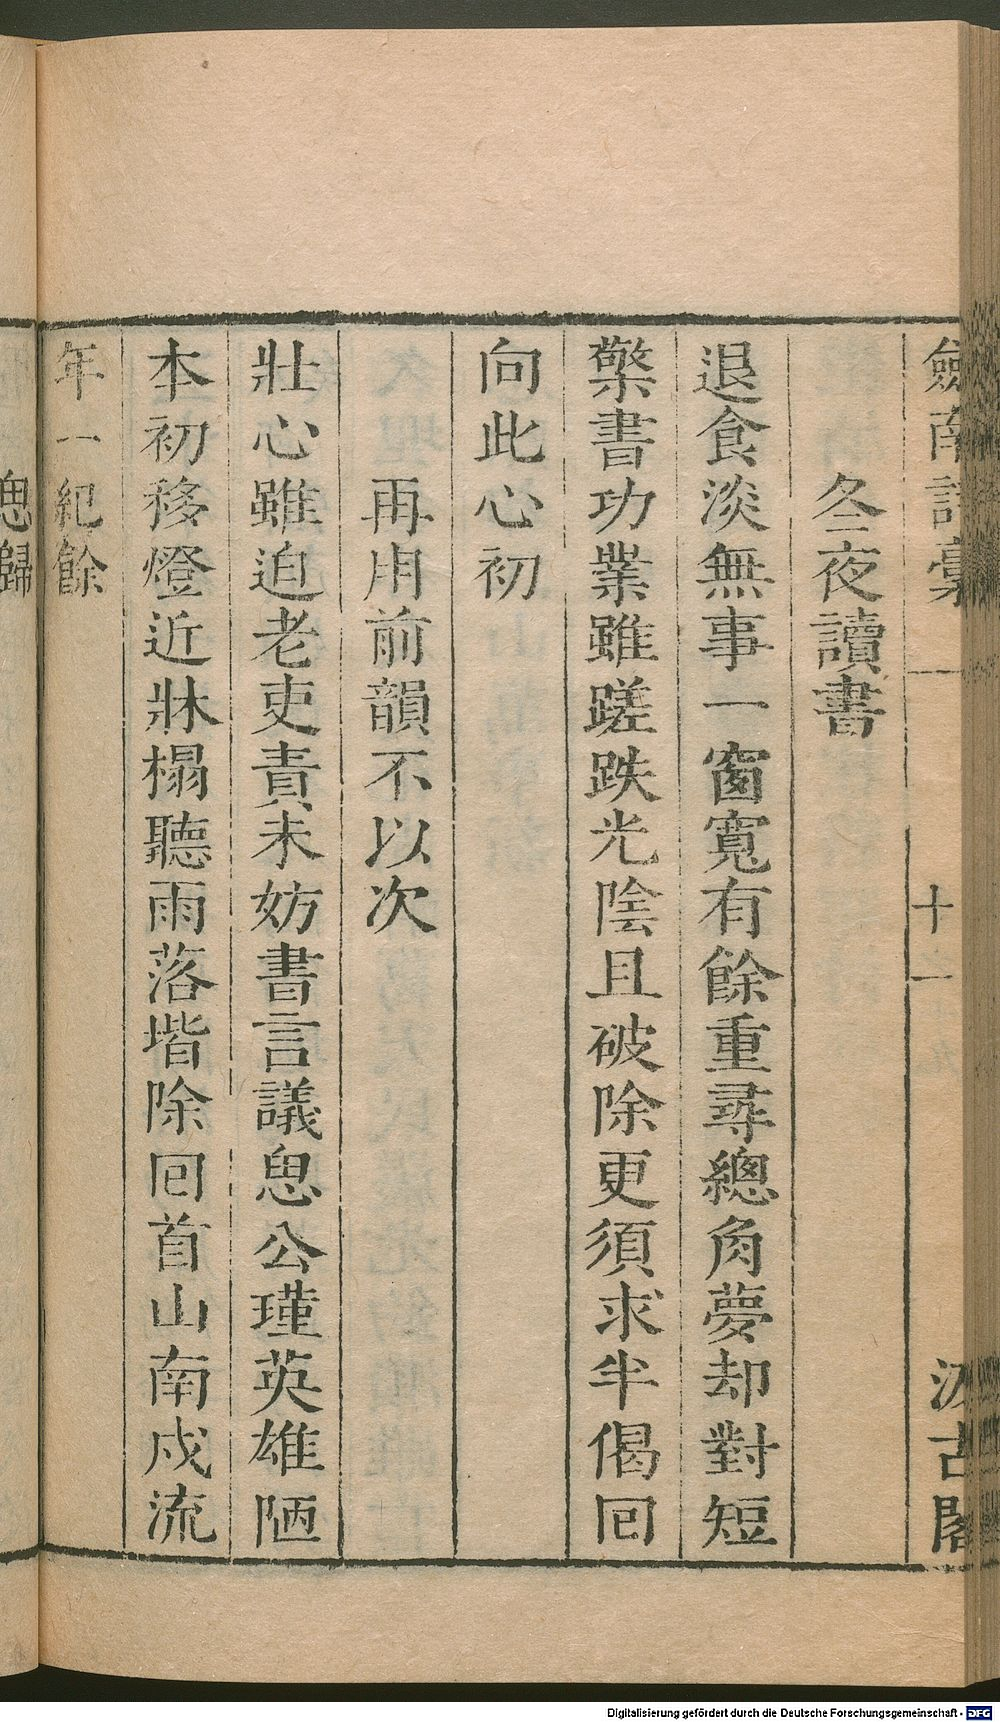 劒南詩稾 一 十一 汲古閣
冬夜讀書
退食淡無事一窗寬有餘重尋總角夢却對短
檠書功業雖蹉跌光陰且破除更須求半偈回
向此心初
再用前韻不以次
壯心雖迫老吏責未妨書言議思公瑾英雄陋
本初移燈近牀榻聽雨落堦除回首山南戍流
年一紀餘
思歸
Digitalisierung gefördert durch die Deutsche Forschungsgemeinschaft - DFG